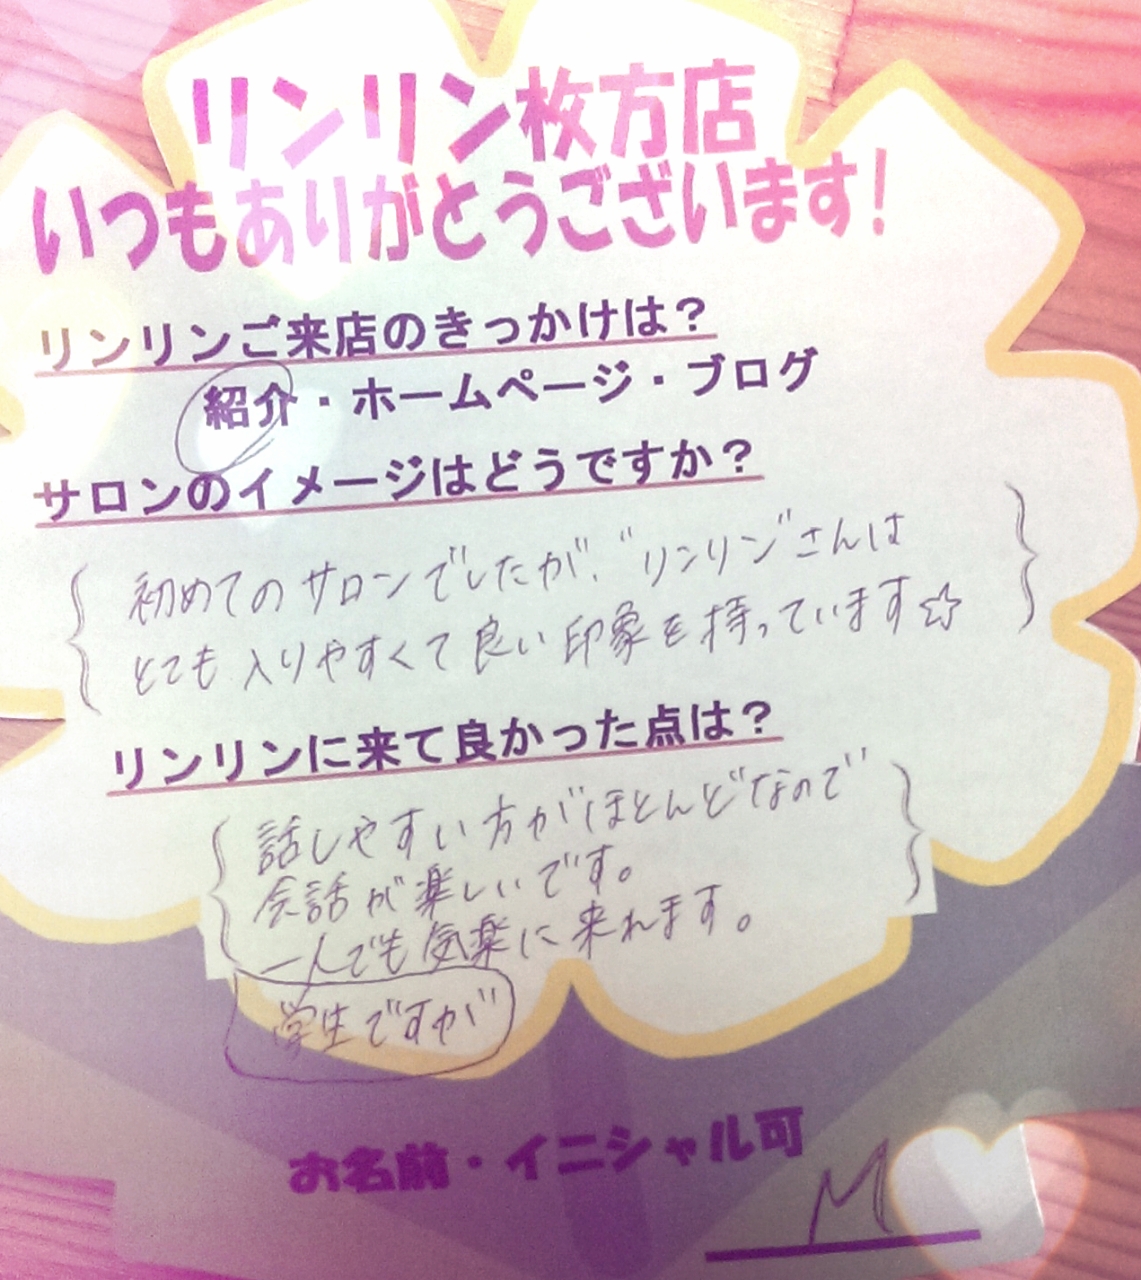 リンリン枚方店
いつもありがとうございます!
リンリンご来店のきっかけは?
紹介・ホームページ・ブログ
サロンのイメージはどうですか?
初めてのサロンでしたが、"リンリン"さんは
とても入りやすくて良い印象を持っています☆
リンリンに来て良かった点は?
話しやすい方がほとんどなので
会話が楽しいです。
一人でも気楽に来れます。
学生ですが
お名前・イニシャル可
M